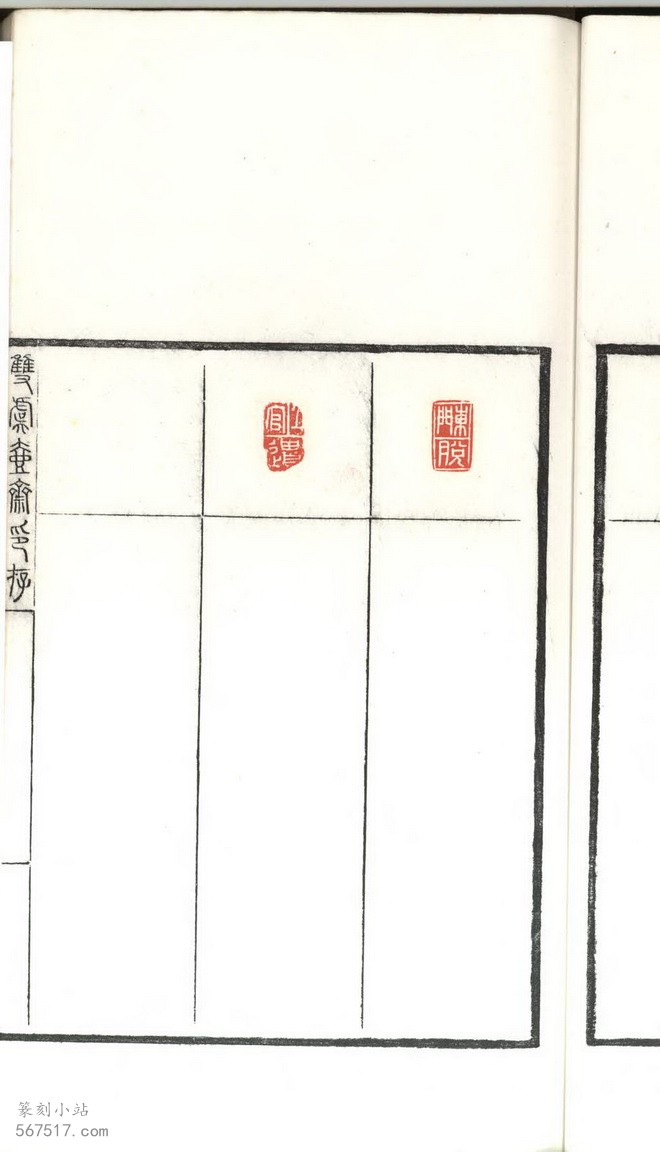 陳脫
上官遺
雙虞壺齋印存
篆刻小站
567517.com